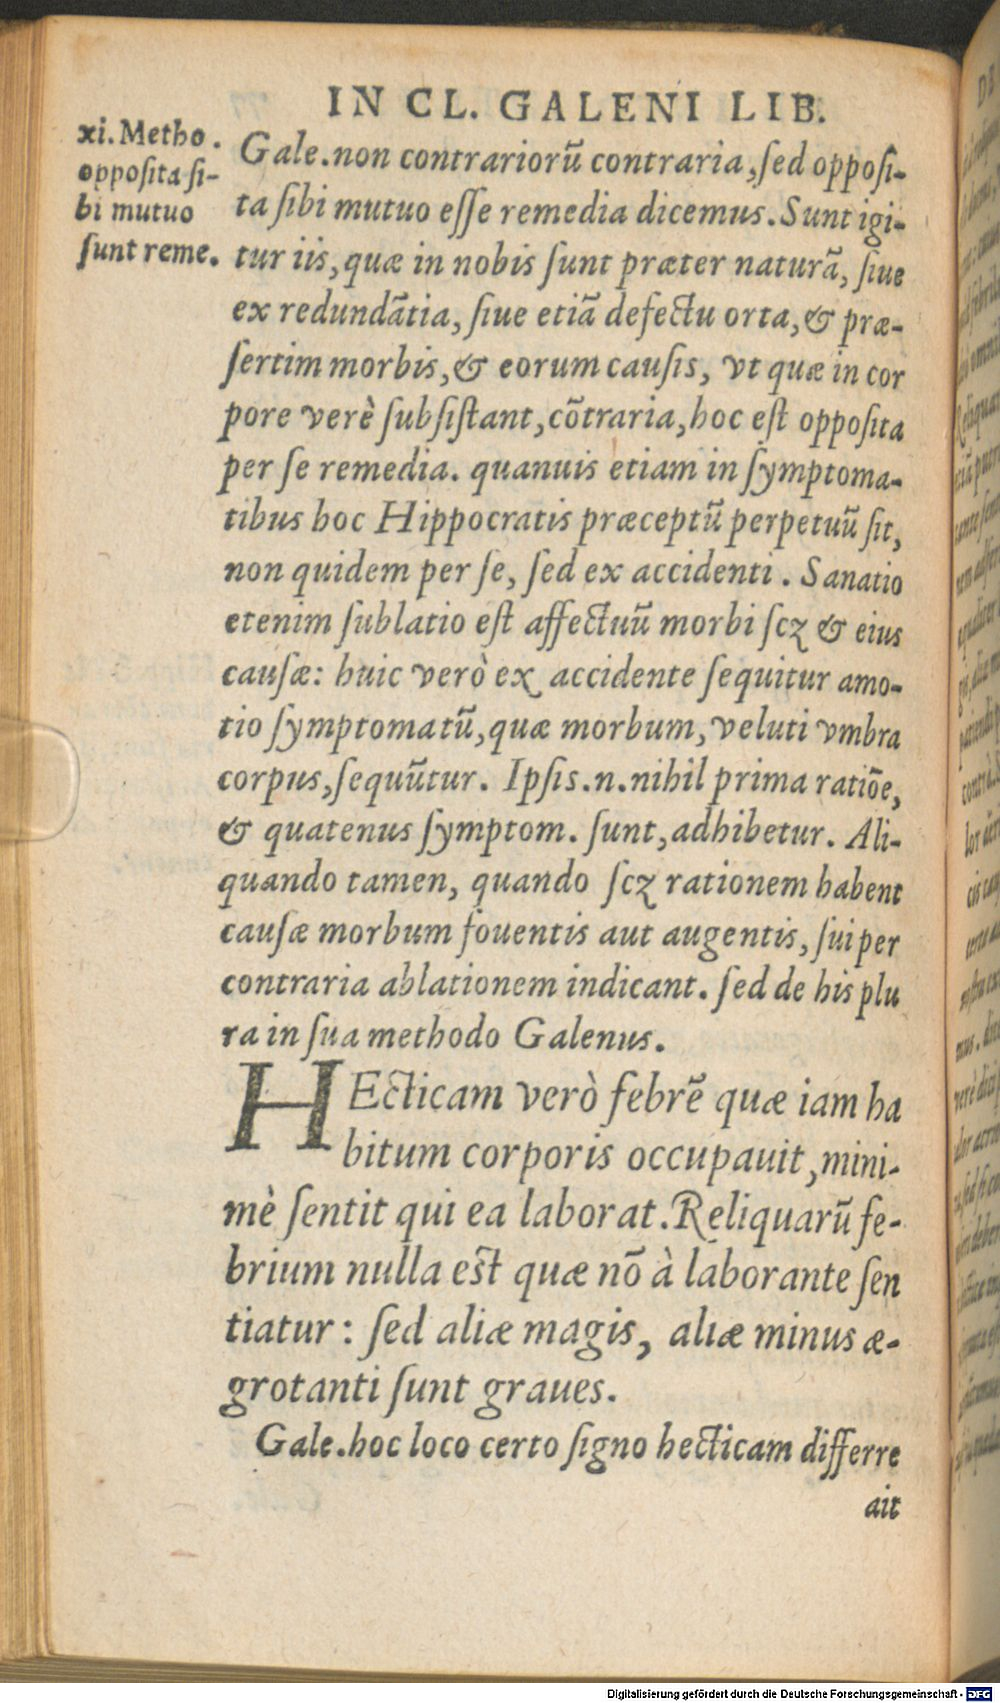 IN CL. GALENI LIB.
xi. Metho.
opposita si-
bi mutuo
sunt reme.
Gale. non contrariorũ contraria, sed opposi-
ta sibi mutuo esse remedia dicemus. Sunt igi-
tur iis, quæ in nobis sunt præter naturã, siue
ex redundãtia, siue etiã defectu orta, & præ-
sertim morbis, & eorum causis, vt quæ in cor
pore verè subsistant, cõtraria, hoc est opposita
per se remedia. quanuis etiam in symptoma-
tibus hoc Hippocratis præceptũ perpetuũ sit,
non quidem per se, sed ex accidenti. Sanatio
etenim sublatio est affectuũ morbi scz & eius
causæ: huic verò ex accidente sequitur amo-
tio symptomatũ, quæ morbum, veluti vmbra
corpus, sequũtur. Ipsis .n. nihil prima ratiõe,
& quatenus symptom. sunt, adhibetur. Ali-
quando tamen, quando scz rationem habent
causæ morbum fouentis aut augentis, sui per
contraria ablationem indicant. sed de his plu
ra in sua methodo Galenus.
HEcticam verò febrẽ quæ iam ha
bitum corporis occupauit, mini-
mè sentit qui ea laborat. Reliquarũ fe-
brium nulla est quæ nõ à laborante sen
tiatur: sed aliæ magis, aliæ minus æ-
grotanti sunt graues.
Gale. hoc loco certo signo hecticam differre
ait
Digitalisierung gefördert durch die Deutsche Forschungsgemeinschaft - DFG